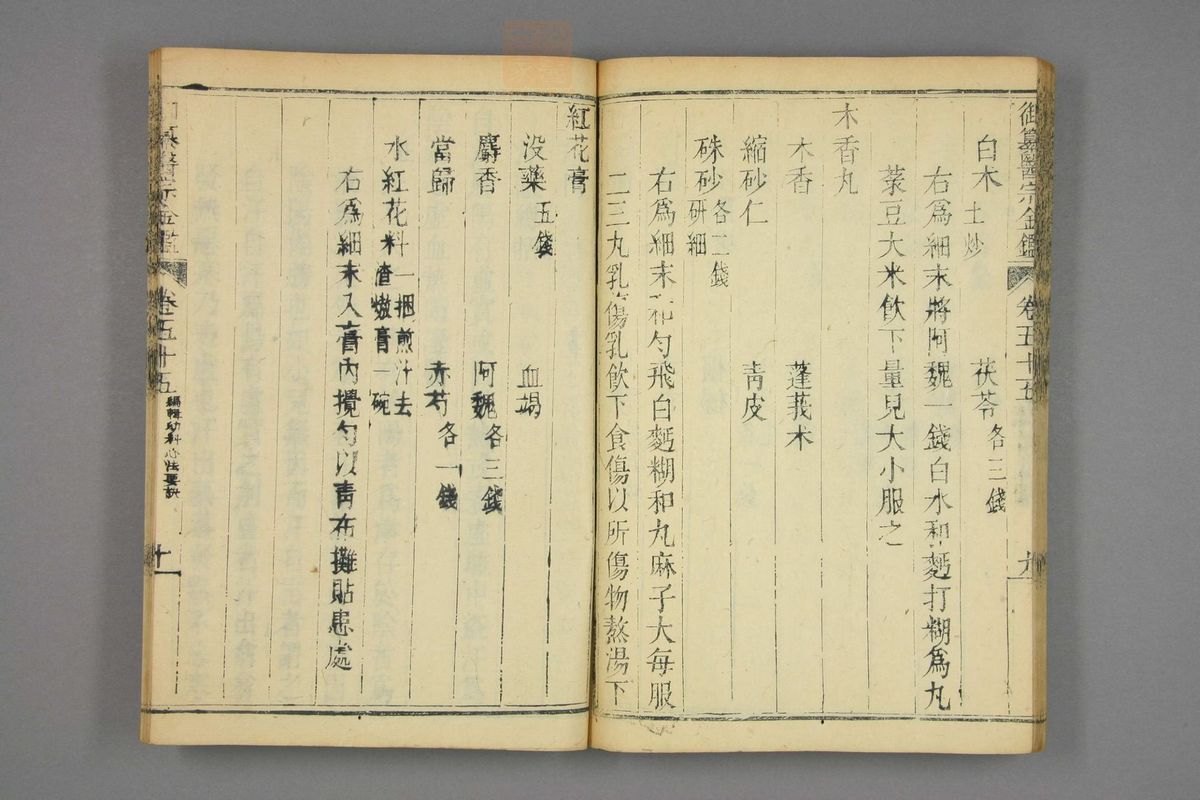 御纂醫宗金鑑 卷五十五 九
白朮土炒 茯苓各三錢
右爲細末將阿魏一錢白水和麪打糊爲丸
菉豆大米飲下量兒大小服之
木香丸
木香 蓬莪朮
縮砂仁 青皮
硃砂研細各二錢
右爲細末和勻飛白麪糊和丸麻子大每服
二三丸乳傷乳飲下食傷以所傷物熬湯下
紅花膏
没藥五錢 血竭
麝香 阿魏各三錢
當歸 赤芍各一錢
水紅花料一捆煎汁去
渣熬膏一碗
右爲細末入膏內攪勻以青布攤貼患處
醫宗金鑑 卷五十五 編輯幼科心法要訣 十